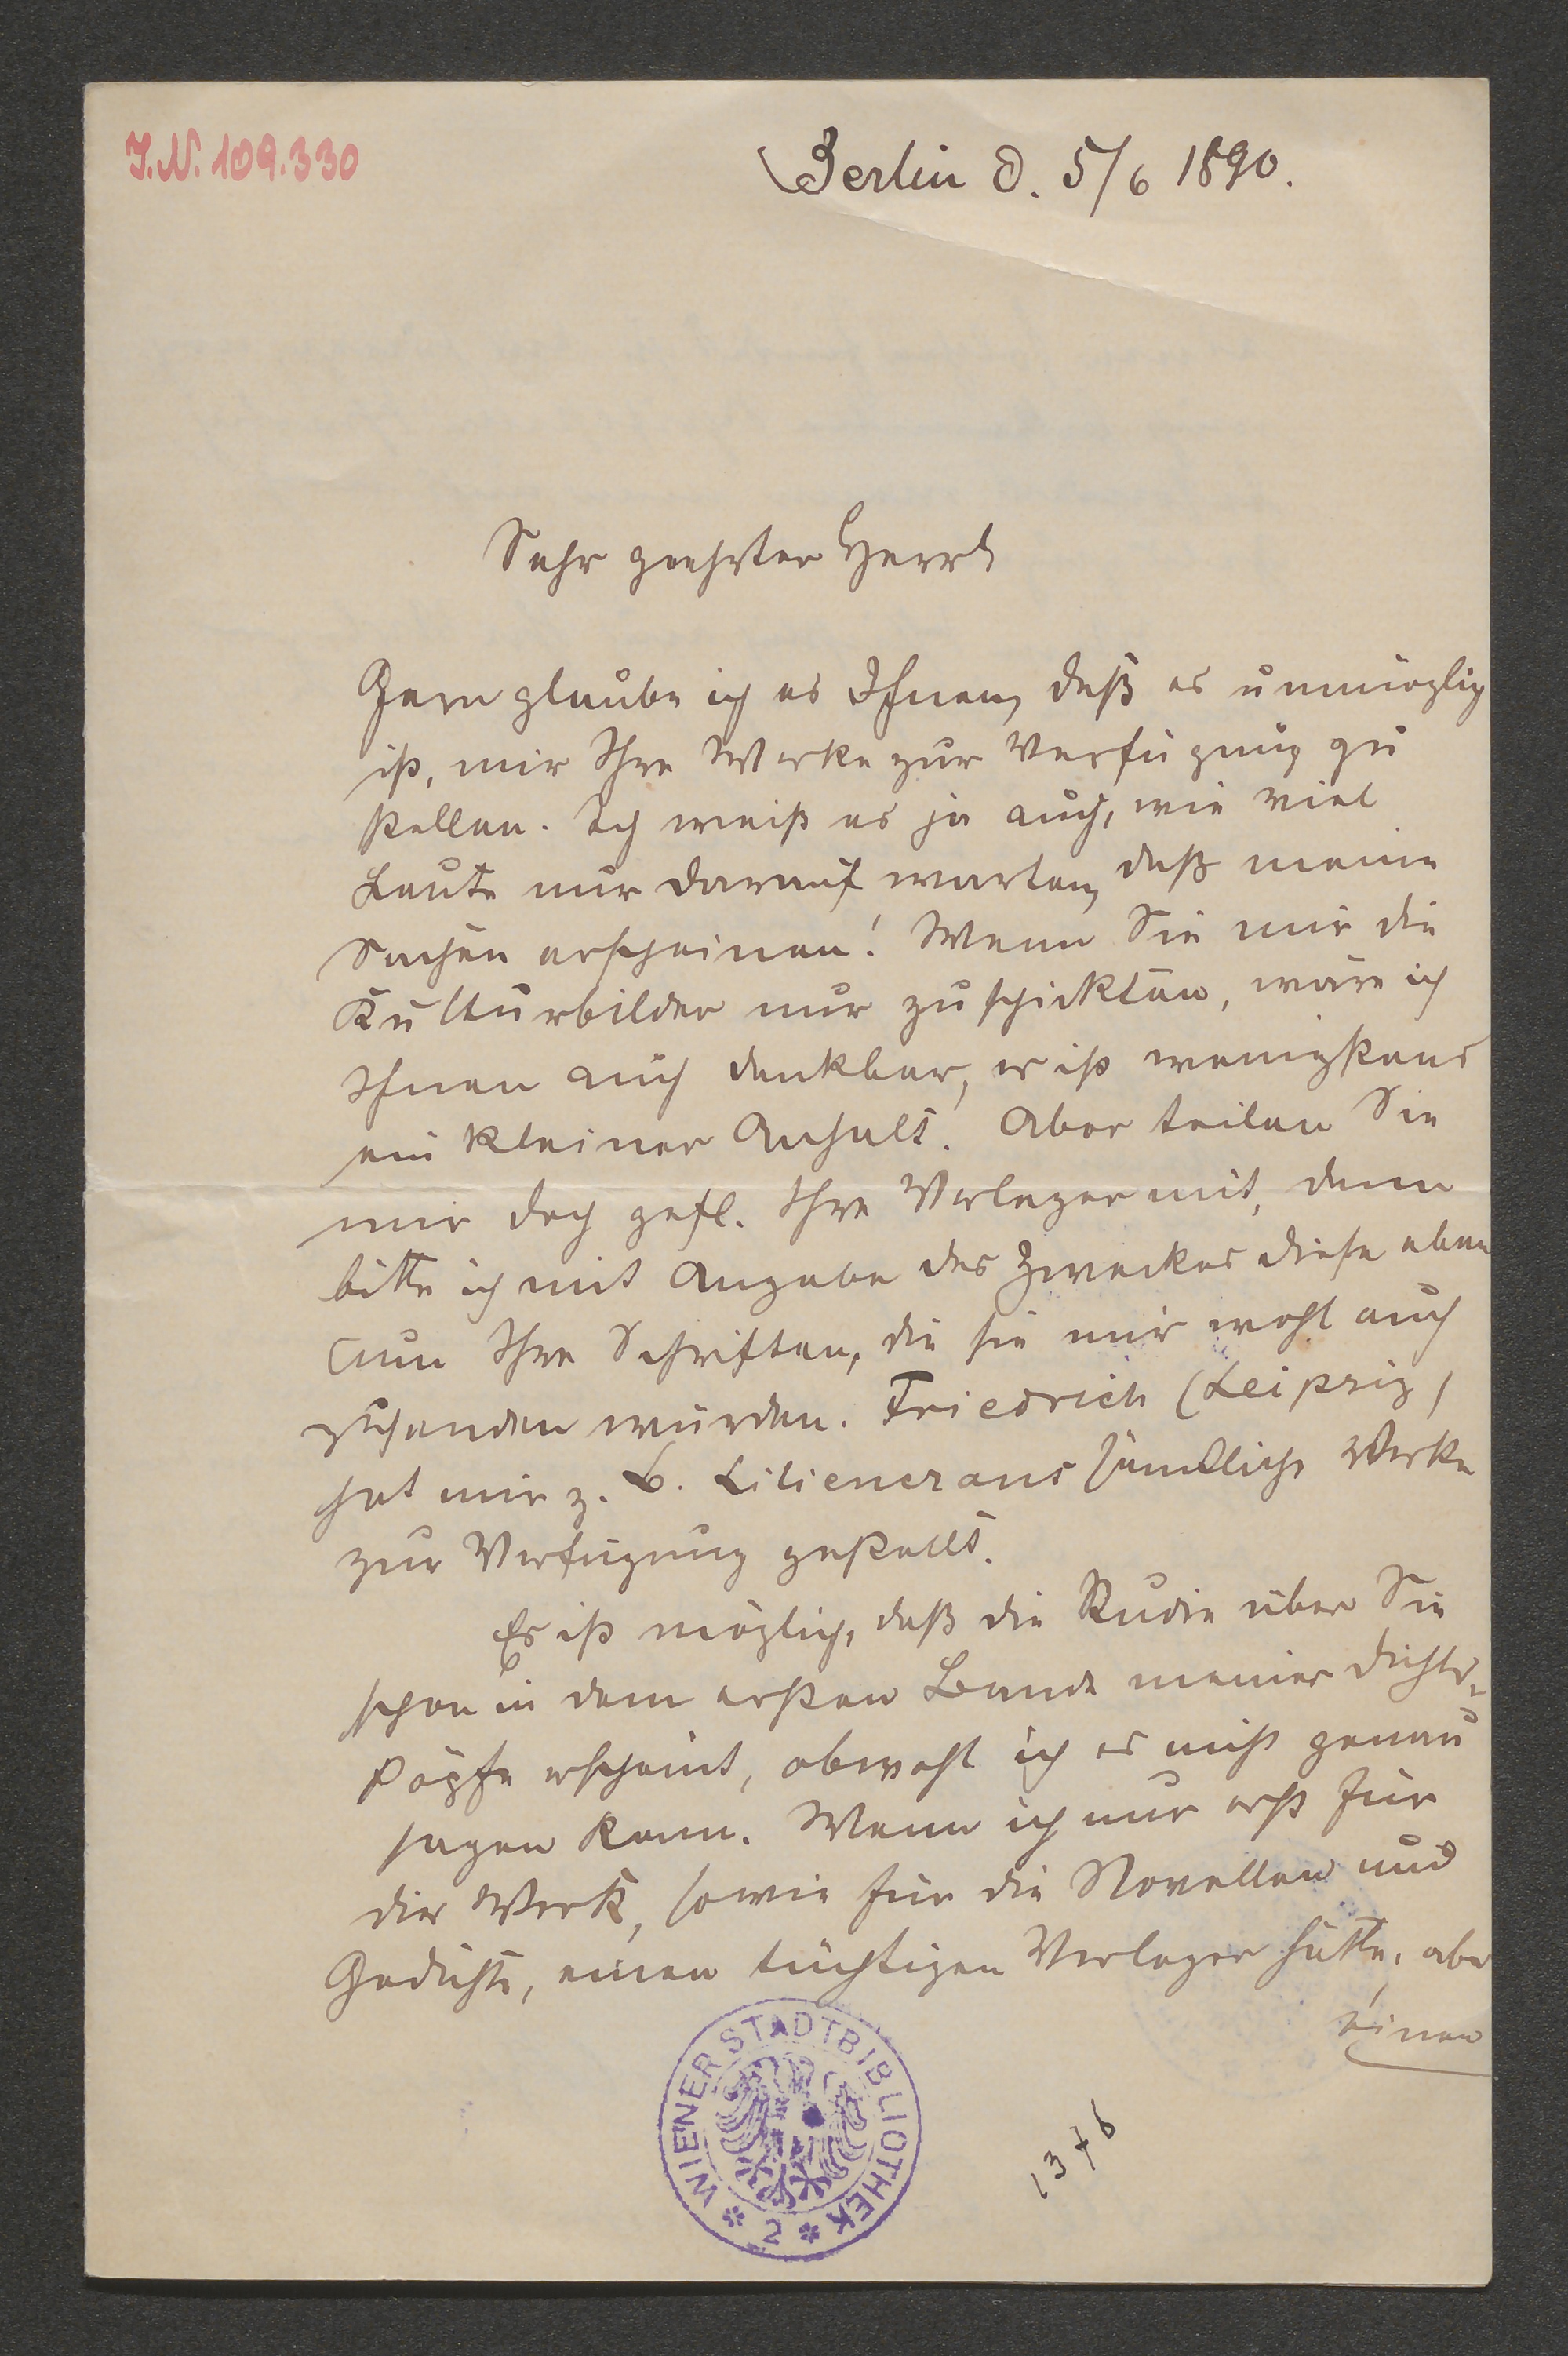 J.N. 109.330
Berlin d. 5/6 1890.
Sehr geehrter Herr!
Gern glaube ich es Ihnen, daß es unmöglich
ist, mir Ihre Werke zur Verfügung zu
stellen. Ich weiß es ja auch, wie viel
Leute nur darauf warten, daß meine
Sachen erscheinen! Wenn Sie mir die
Kulturbilder nur zuschickten, wäre ich
Ihnen auch dankbar, es ist wenigstens
ein kleiner Anhalt. Aber teilen Sie
mir doch gefl. Ihre Verleger mit, dann
bitte ich mit Angabe des Zweckes diese eben
um Ihre Schriften, die sie mir wohl auch
zusenden würden. Friedrich (Leipzig)
hat mir z. B. Liliencrons sämtliche Werke
zur Verfügung gestellt.
Es ist möglich, daß die Studie über Sie
schon in dem ersten Bande meiner Dichter-
köpfe erscheint, obwohl ich es nicht genau
sagen kann. Wenn ich nur erst für
dies Werk, sowie für die Novellen und
Gedichte, einen tüchtigen Verleger hätte, aber
einen
WIENER STADTBIBLIOTHEK
2
1376